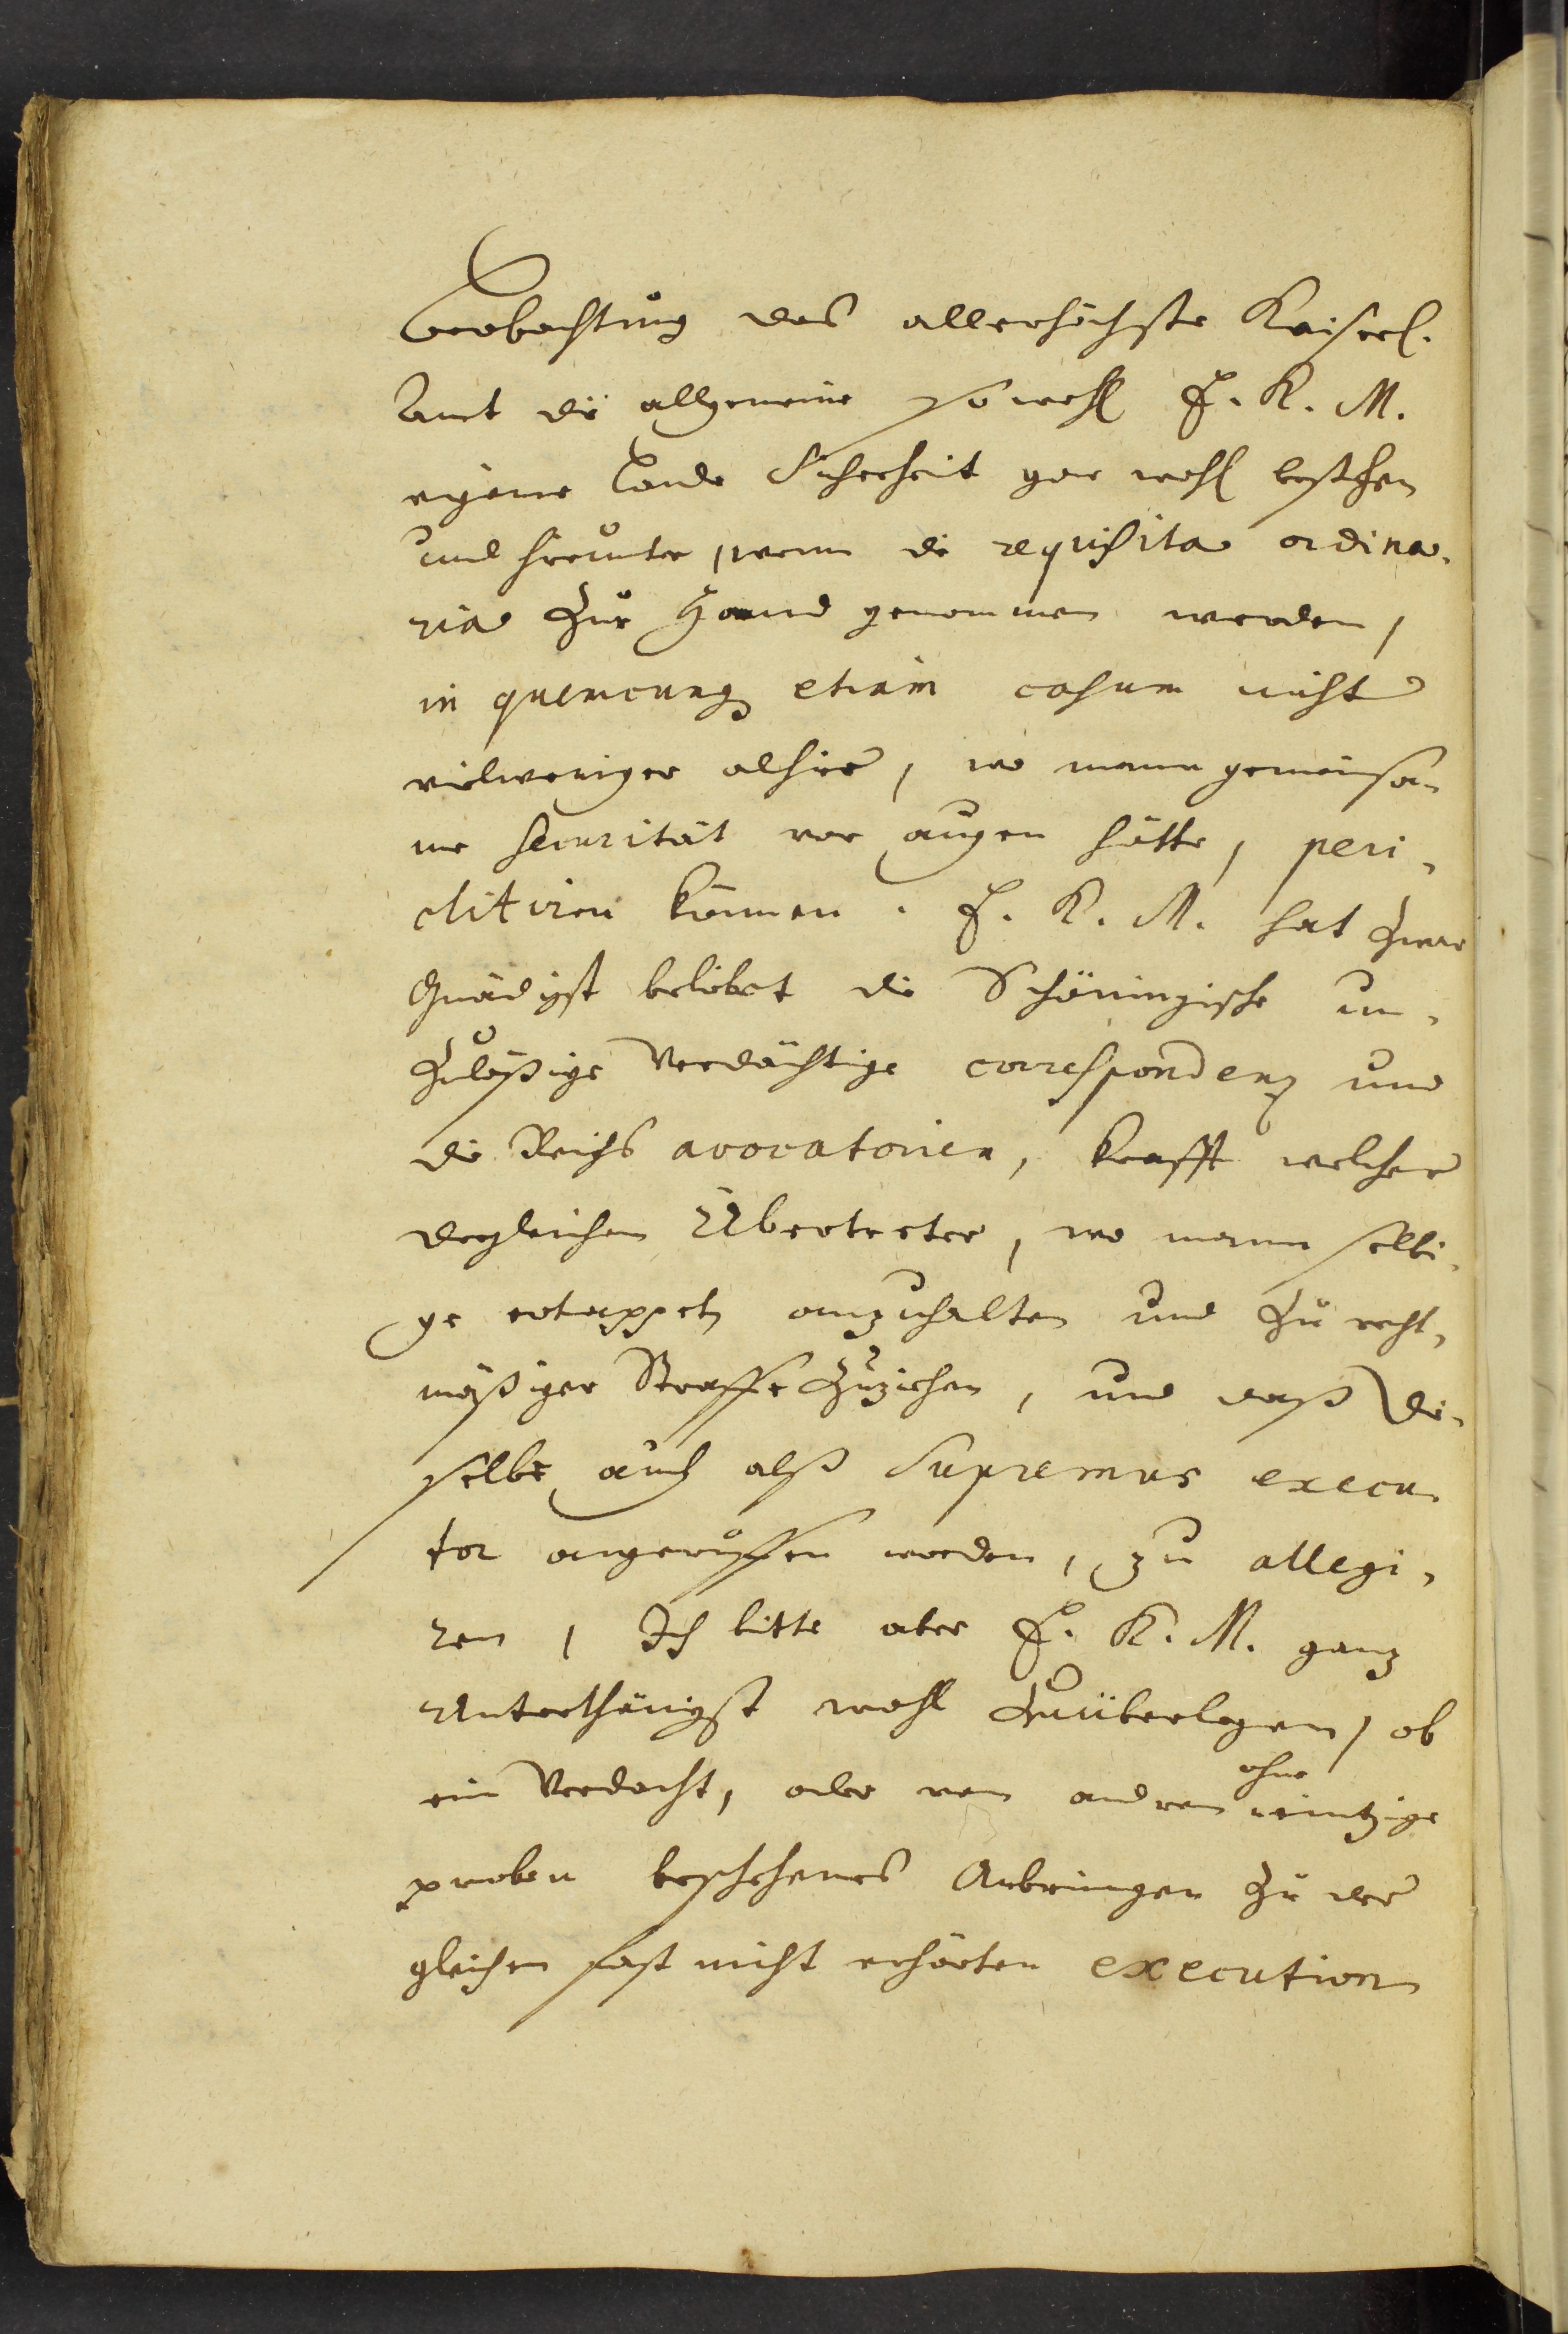 Beobachtung des allerhöchste Kaiserl.
Amt die allgemeine so wohl E. K. M.
eigene Lande Sicherheit gar wohl bestehen
und hierunter, wenn die requisita ordina-
ria zur Hand genommen werden,
in quemcunq etiam casum nicht
vielweniger alhier, wo mann gemeinsa-
me securität vor augen hätte, peri-
clitiren können. E. K. M. hat zwar
Gnädigst beliebet die Schöningische un-
zuläßige Verdächtige correspondenz und
die Reichs avocatorien, krafft welcher
dergleichen Ubertreter, wo mann selbi-
ge ertappet, anzuhalten und zu recht-
mäßiger Straffe zuziehen, und daß die-
selbe auch alß Supremus execu
tor angeruffen worden, zu allegi-
ren, Ich bitte aber E. K. M. ganz
Unterthänigst wohl zuüberlegen, ob
ein Verdacht, oder von andren ohne eintzige
proben beschehenes Anbringen zu der
gleichen fast nicht erhörten execution